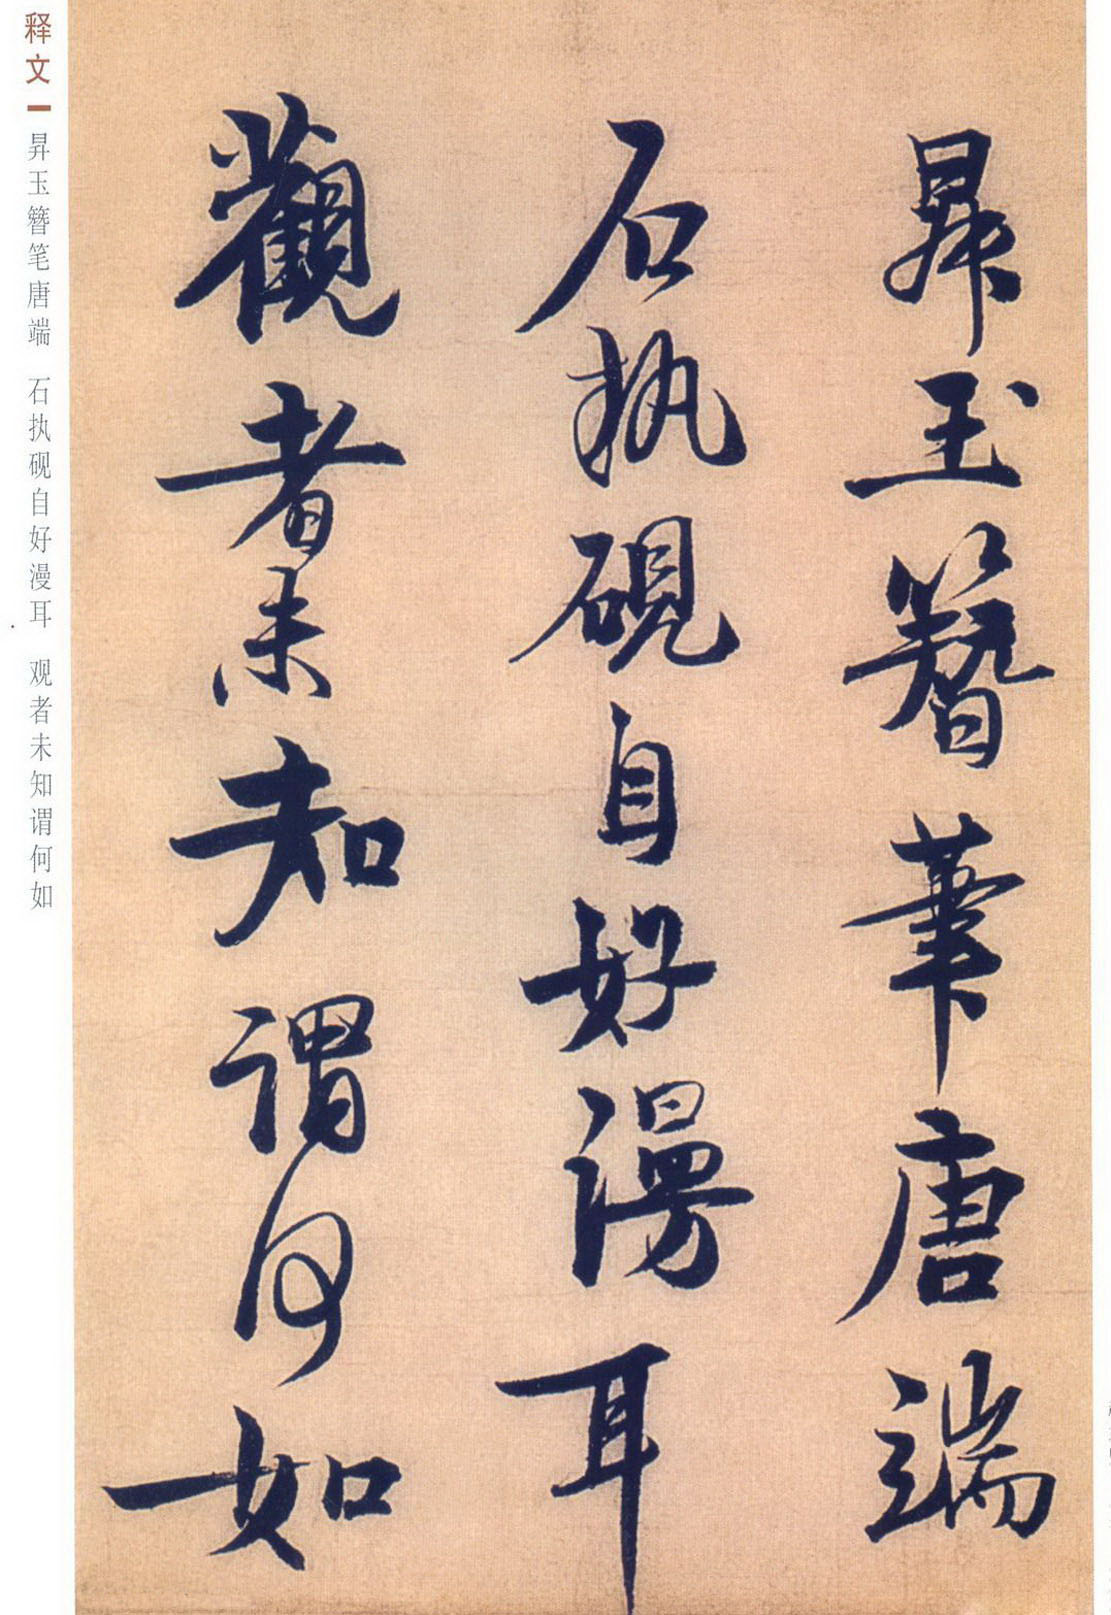 昇玉簪筆唐端
石执砚自好漫耳
觀者未知謂何如
释文
昇玉簪笔唐端 石执砚自好漫耳 观者未知谓何如